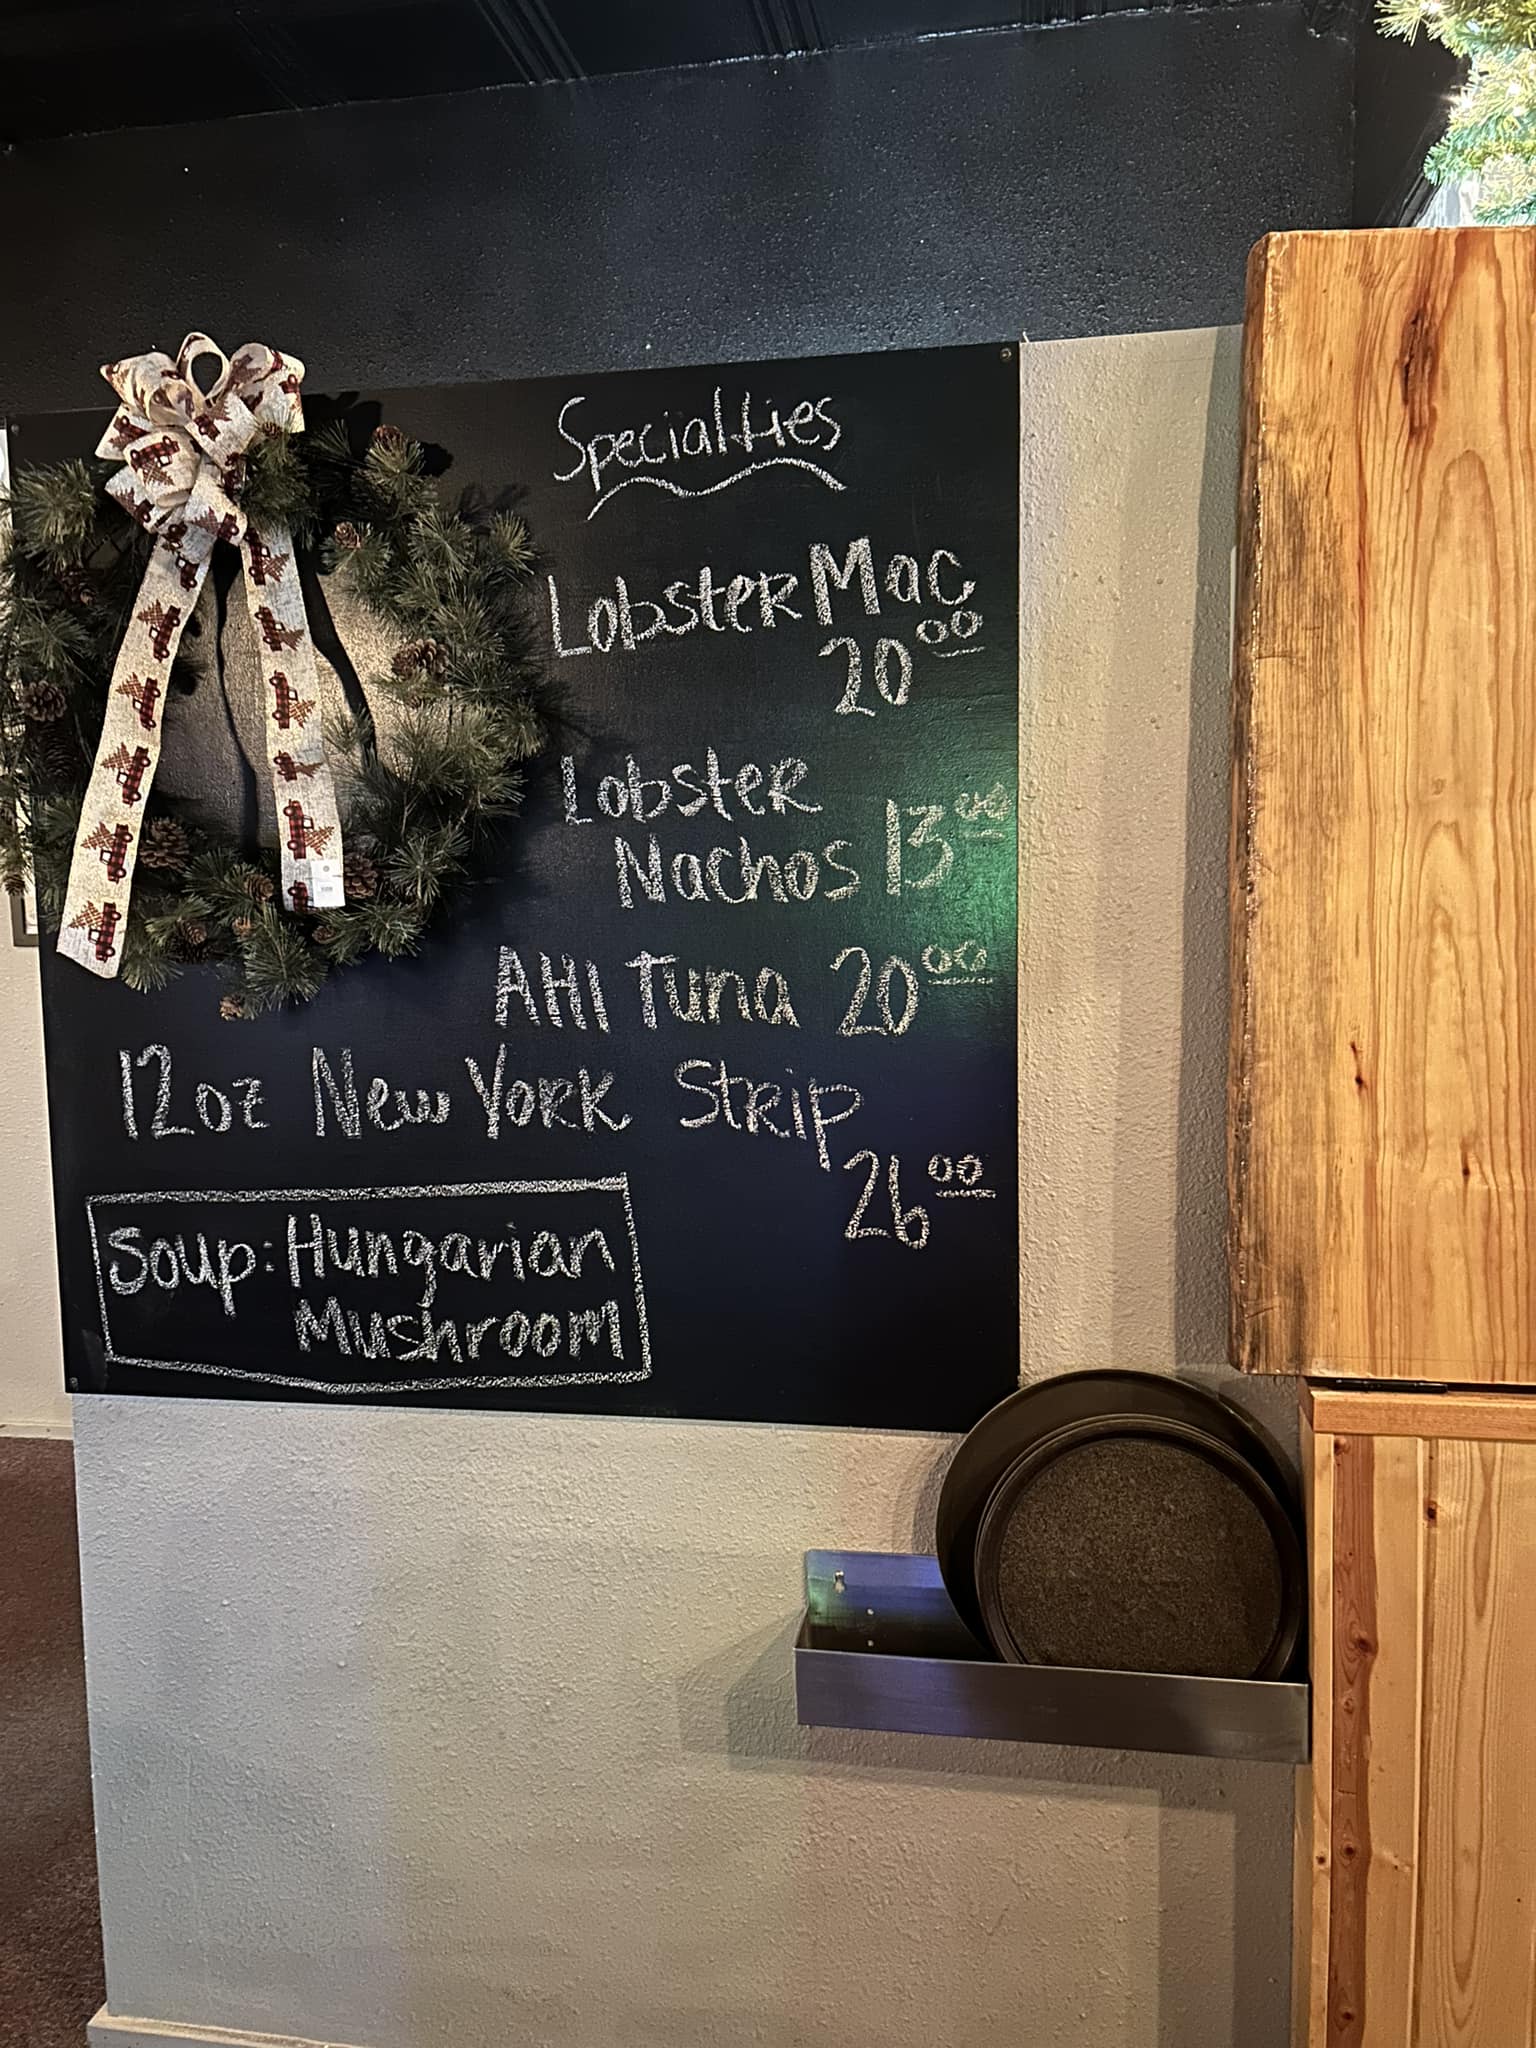 Specialties
Lobster Mac
20 00
Lobster
Nachos 13 00
AHI Tuna 20 00
12oz New York Strip
26 00
Soup: Hungarian
Mushroom